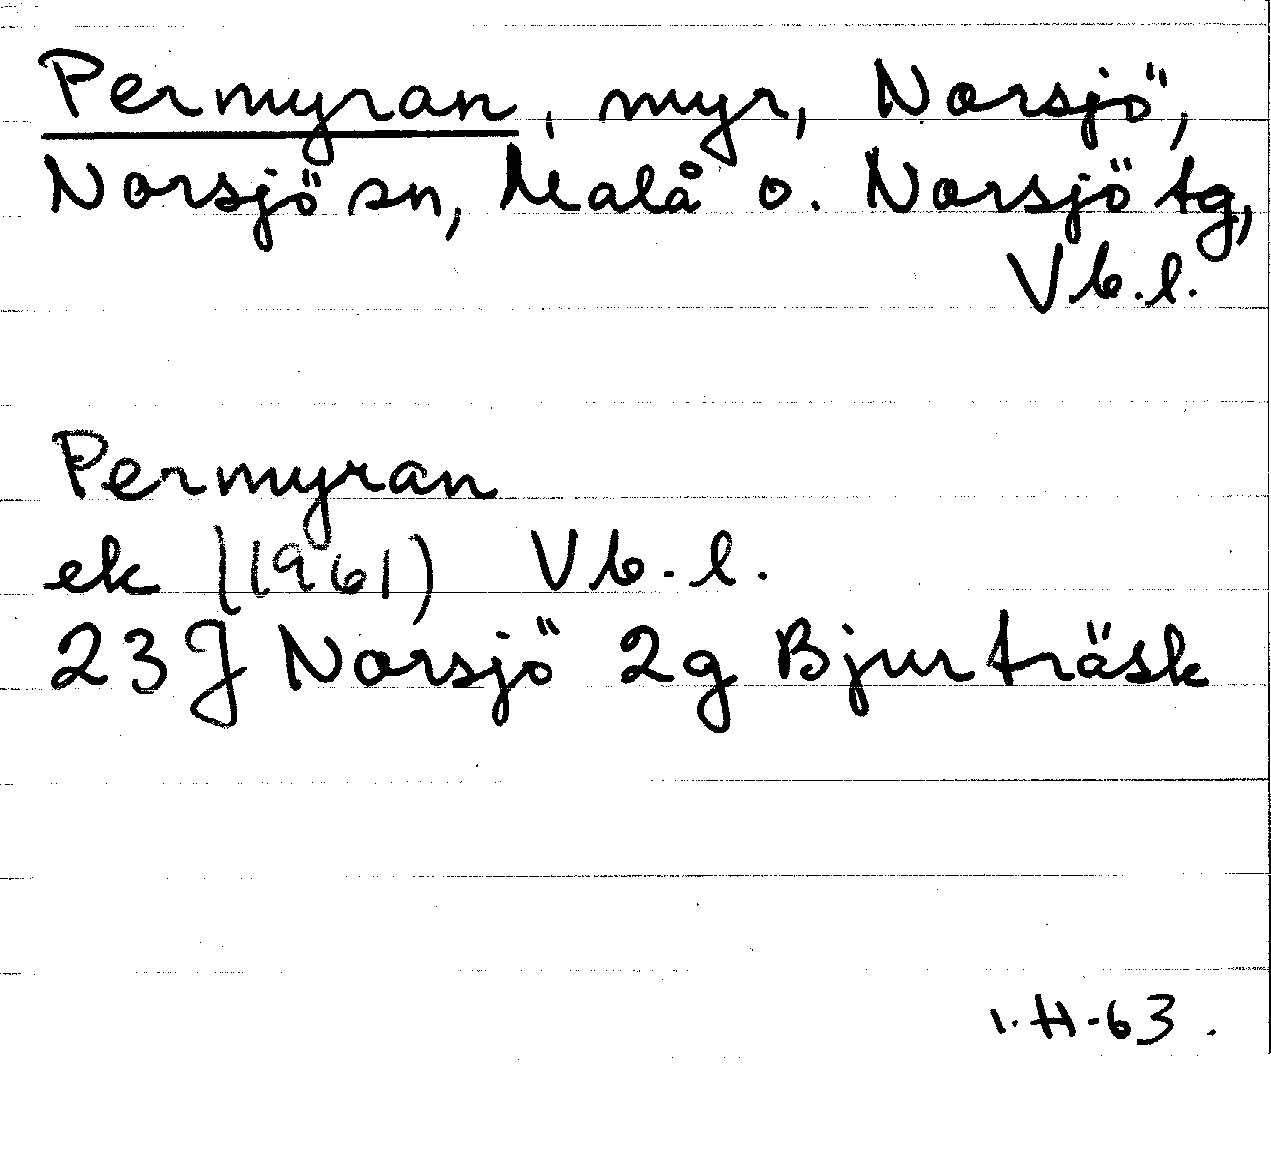 Permyran, myr, Norsjö,
Norsjö sn, Malå o. Norsjö tg,
Vb.l.
Permyran
ek (1961) Vb.l.
23J Norsjö 2g Bjurträsk
I.H-63.